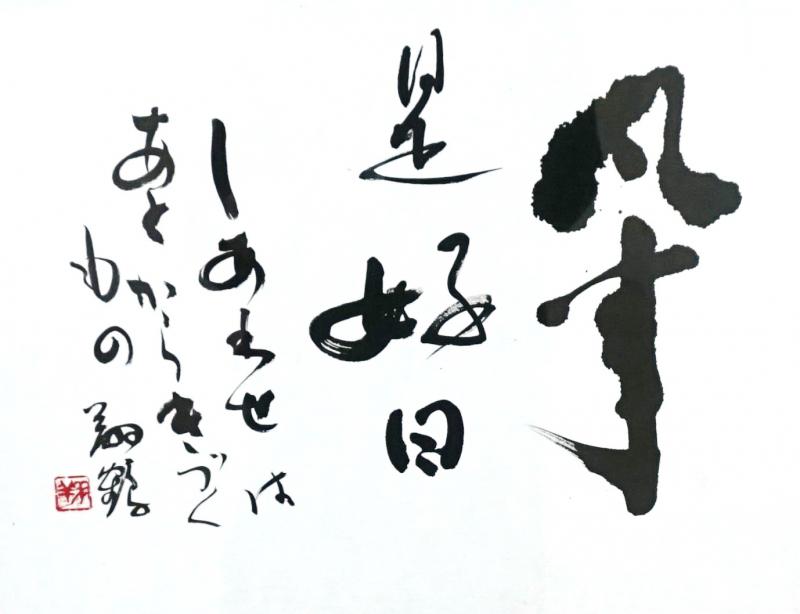 是好日
しあわせは
あとからきづく
もの 翔鶴
翔